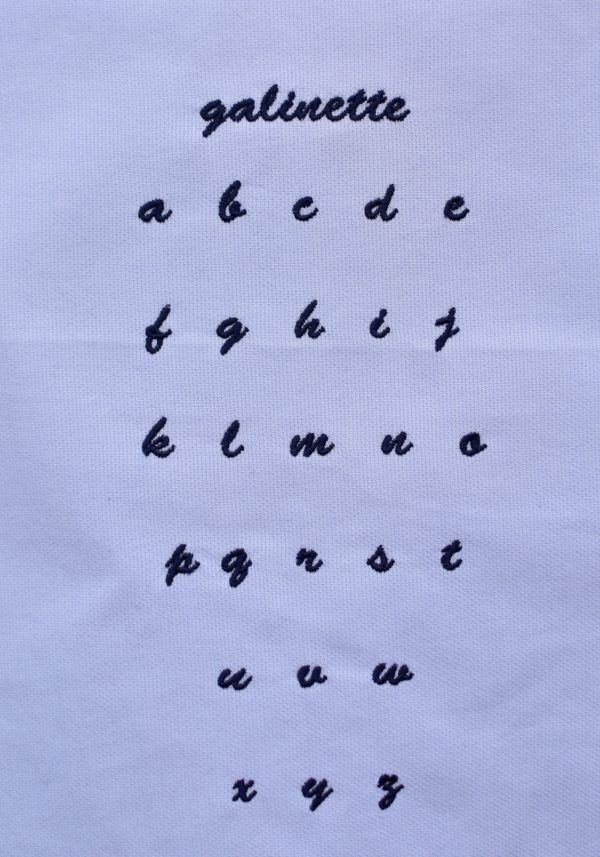 galinette
a b c d e
f g h i j
k l m n o
p q r s t
u v w
x y z